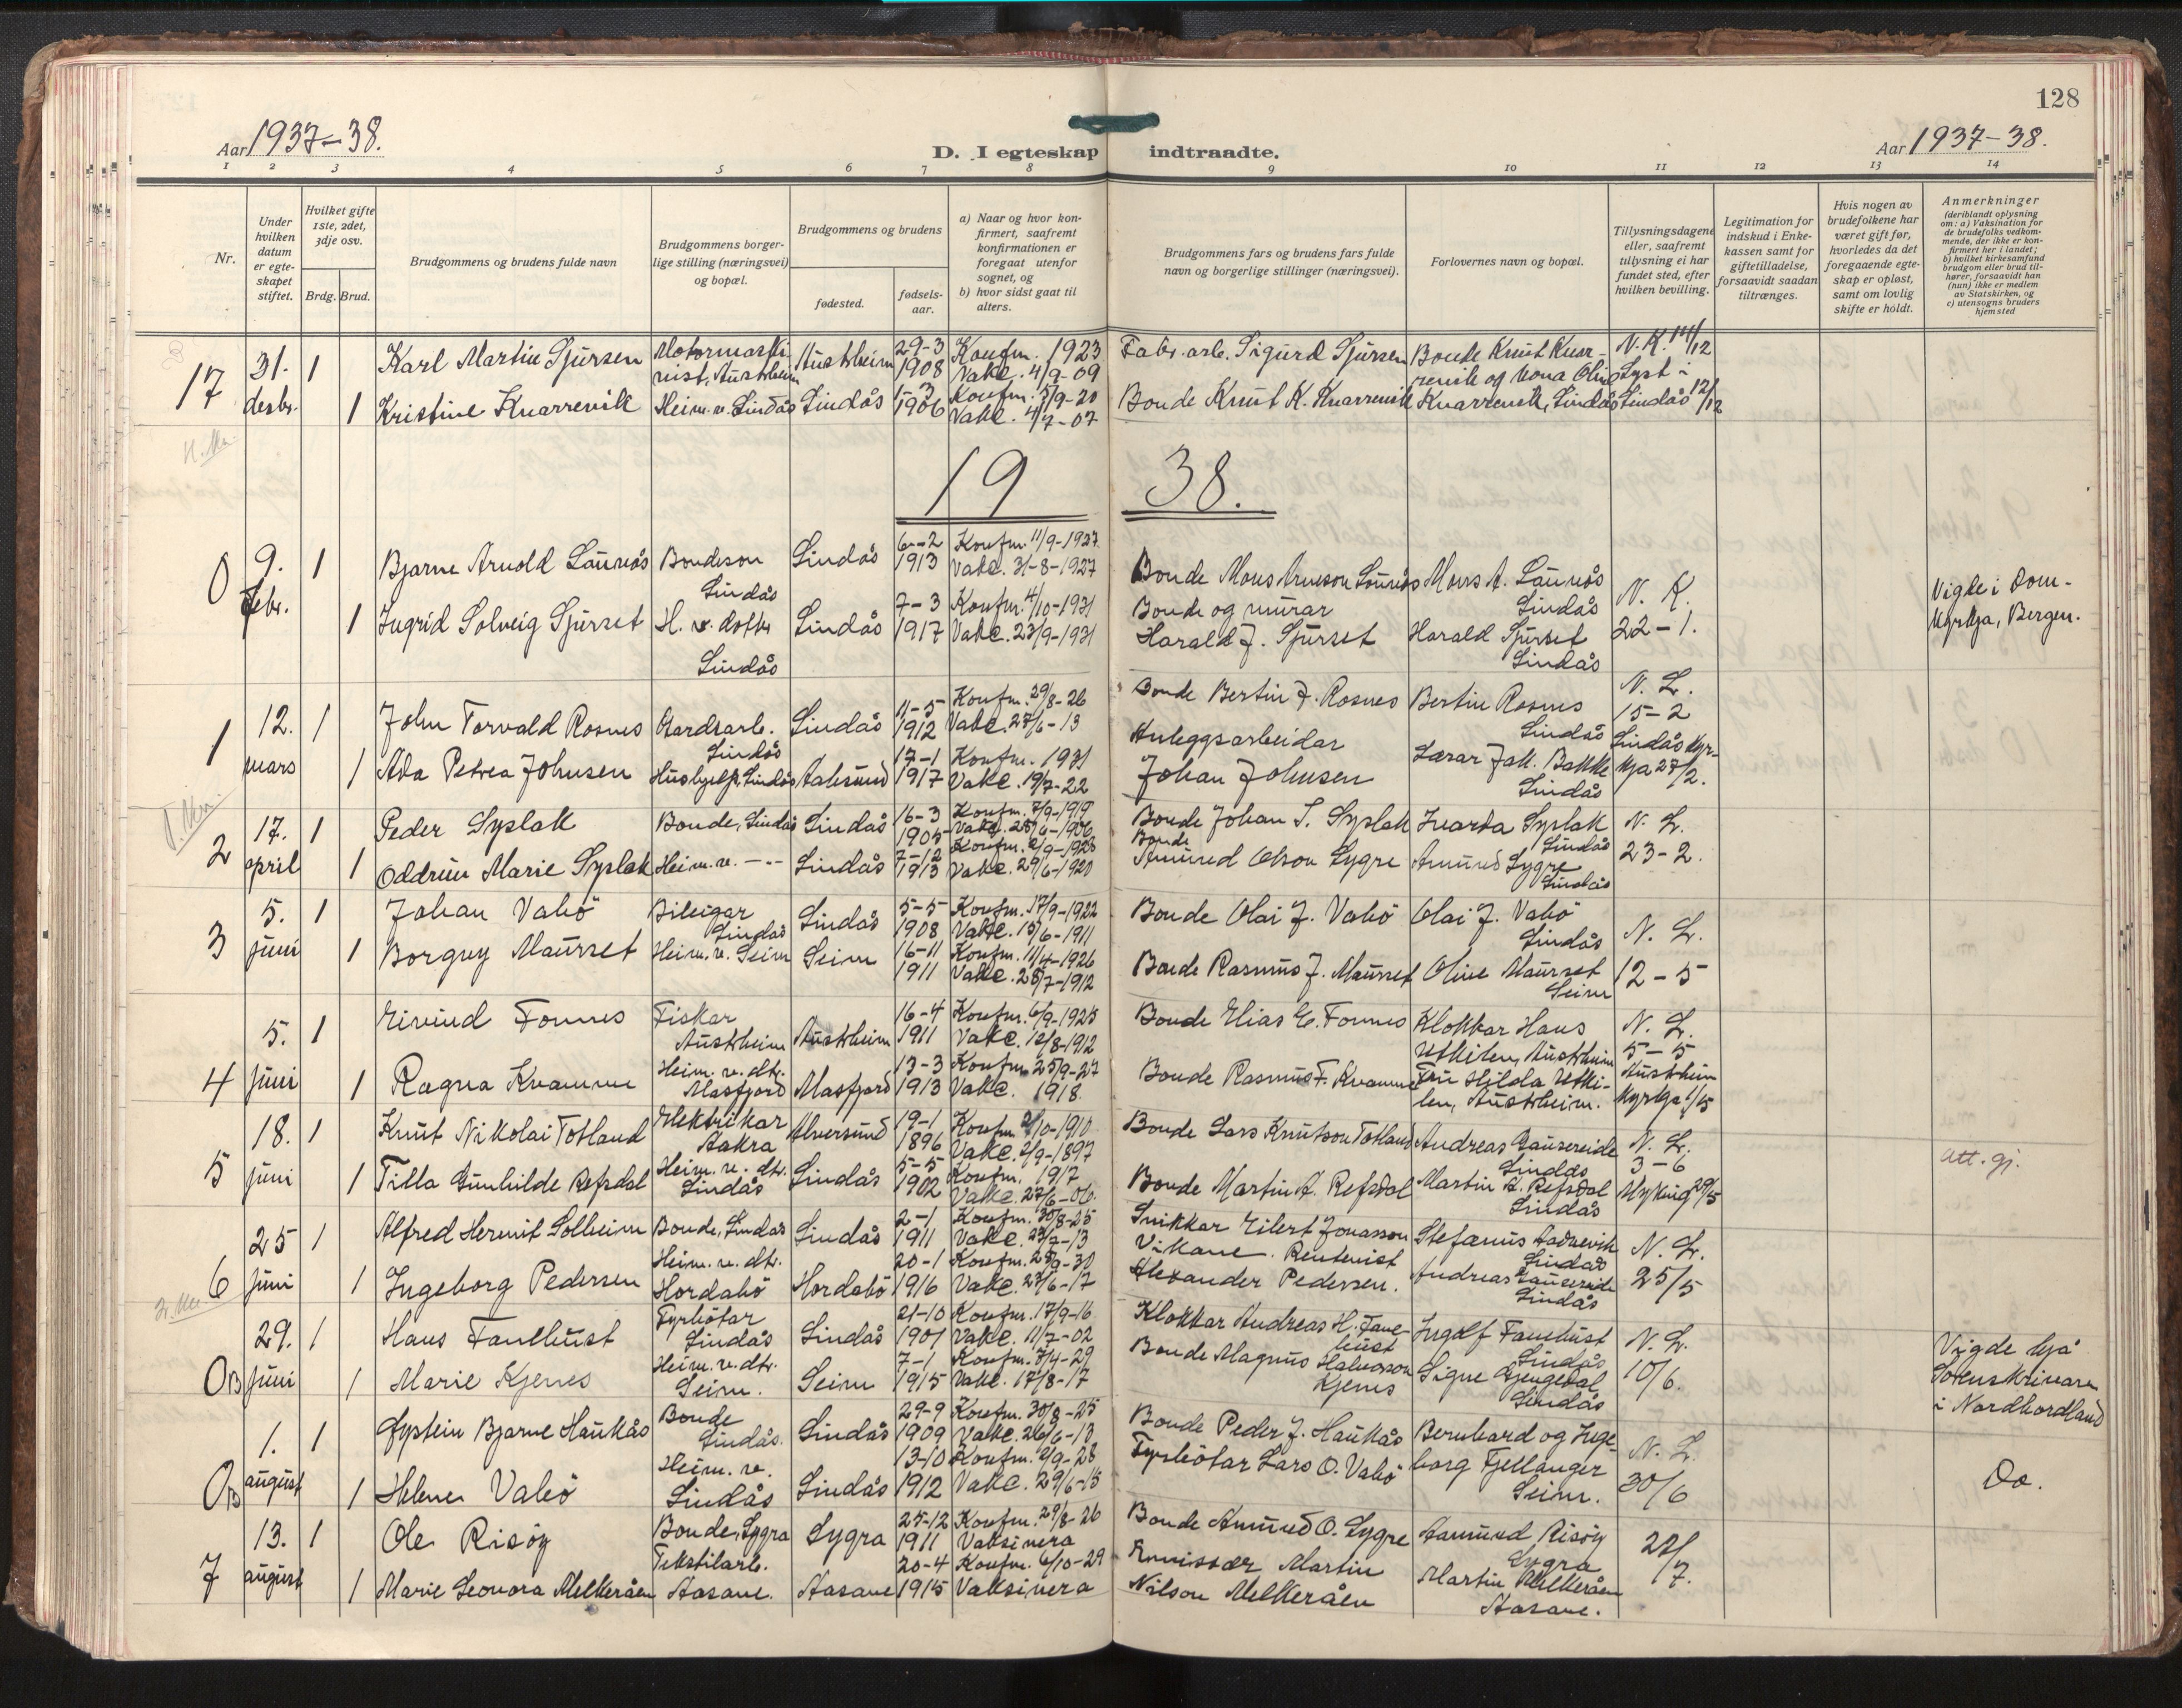 128
Aar 1937-38.
D. I egteskap indtraadte.
Aar 1937-38.
1 2 3 4 5 6 7 8 9 10 11 12 13 14
Nr.
Under hvilken datum er egteskapet stiftet.
Hvilket gifte 1ste, 2det, 3dje osv.
Brdg. Brud.
Brudgommens og brudens fulde navn
Brudgommens borgerlige stilling (næringsvei) og bopæl.
Brudgommens og brudens
fødested.
fødselsaar.
a) Naar og hvor konfirmert, saafremt konfirmationen er foregaat utenfor sognet, og
b) hvor sidst gaat til alters.
Brudgommens fars og brudens fars fulde navn og borgerlige stillinger (næringsvei).
Forlovernes navn og bopæl.
Tillysningsdagene eller, saafremt tillysning ei har fundet sted, efter hvilken bevilling.
Legitimation for indskud i Enkekassen samt for giftetilladelse, forsaavidt saadan tiltrænges.
Hvis nogen av brudefolkene har været gift før, hvorledes da det foregaaende egteskap er opløst, samt om lovlig skifte er holdt.
Anmerkninger
(deriblandt oplysning om: a) Vaksination for de brudefolks vedkommende, der ikke er konfirmert her i landet; b) hvilket kirkesamfund brudgom eller brud tilhører, forsaavidt han (hun) ikke er medlem av Statskirken, og c) utensogns bruders hjemsted
17 31. desbr. 1 Karl Martin Sjursen Motormaskinist, Austrheim Austrheim 29-3 1908 Konfm. 1923 Vakc. 4/9-09 Fabr. arb. Sigurd Sjursen Bonde Knut Knarrevik og kona Olina N. K. 11/12
1 Kristine Knarrevik Heim. v. Lindås Lindås 1-3 1906 Konfm. 5/9-20 Vakc. 4/7-07 Bonde Knut K. Knarrevik Knarrevik, Lindås Lyst i Lindås 12/12
1938.
0 9. febr. 1 Bjarne Arnold Launås Bondeson Lindås Lindås 6-2 1913 Konfm. 11/9-1927 Vakc. 31-8-1927 Bonde Mons Arneson Launås Mons A. Launås Lindås N. K. Vigde i Domkyrkja, Bergen.
1 Ingrid Solveig Sjurset H. v. dotter Lindås Lindås 7-3 1917 Konfm. 4/10-1931 Vakc. 23/9-1931 Bonde og murar Harald J. Sjurset Harald Sjurset Lindås 22-1.
1 12. mars 1 John Torvald Rosnes Gardsarb. Lindås Lindås 11-5 1912 Konfm. 29/8-26 Vakc. 27/6-13 Bonde Bertin J. Rosnes Bertin Rosnes Lindås N. L. 15-2
1 Ada Petrea Johnsen Hushjelp, Lindås Aalesund 17-1 1917 Konfm. 1931 Vakc. 19/7-22 Anleggsarbeidar Johan Johnsen Lærar Jak. Bakke Lindås Lindås kyrkja 27/2.
2 17. april 1 Peder Syslak Bonde, Lindås Lindås 16-3 1905 Konfm. 7/9-1919 Vakc. 25/6-1906 Bonde Johan S. Syslak Ivarda Syslak Lindås N. L.
1 Oddrun Marie Syslak Heim. v. -"- Lindås 7-12 1913 Konfm. 2/9-1928 Vakc. 29/6-1920 Bonde Amund Olson Lygre Amund Lygre Lindås 23-2.
3 5. juni 1 Johan Vabö Bileigar Lindås Lindås 5-5 1908 Konfm. 17/9-1922 Vakc. 15/6-1911 Bonde Olai J. Vabö Olai J. Vabö Lindås N. L.
1 Borgny Maurset Heim. v. Seim Seim 16-11 1911 Konfm. 11/4-1926 Vakc. 25/7-1912 Bonde Rasmus J. Maurset Oline Maurset Seim 12-5
4 5. juni 1 Eivind Fonnes Fiskar Austrheim Austrheim 16-4 1911 Konfm. 6/9-1925 Vakc. 12/8-1912 Bonde Elias E. Fonnes Klokkar Hans Utkilen, Austrheim N. L. 5-5
1 Ragna Kvamme Heim. v. dtr. Masfjord Masfjord 13-3 1913 Konfm. 25/9-27 Vakc. 1918. Bonde Rasmus F. Kvamme Fru Hilda Utkilen, Austrheim. Austrheim Kyrkja 1/5
5 18. juni 1 Knut Nikolai Totland Elektrikar Aakra Alversund 19-1 1896 Konfm. 2/10-1910 Vakc. 2/9-1897 Bonde Lars Knutson Totland Andreas Gausereide Lindås N. L. 3-6 att. gj.
1 Tilla Gunhilde Refsdal Heim. v. dtr. Lindås Lindås 5-5 1902 Konfm. 1917 Vakc. 27/6-06 Bonde Martin A. Refsdal Martin A. Refsdal Lindås Myking 29/5
6 25 juni 1 Alfred Hermit Solheim Bonde, Lindås Lindås 2-1 1911 Konfm. 30/8-25 Vakc. 23/7-13 Snikkar Eilert Jonasson Vikane. Stefanus Aadnevik Lindås N. L.
1 Ingeborg Pedersen Heim. v. dtr. Hordabö Hordabö 20-1 1916 Konfm. 28/9-30 Vakc. 23/6-17 Rentenist Alexander Pedersen. Andreas Gausereide Lindås 25/5
0B 29. juni 1 Hans Fanebust Fyrbötar Lindås Lindås 21-10 1901 Konfm. 17/9-16 Vakc. 11/7-02 Klokkar Andreas H. Fanebust Ingolf Fanebust Lindås N. L. Vigde hjå Sorenskrivaren i Nordhordland
1 Marie Kjenes Heim. v. dtr. Seim. Seim 7-1 1915 Konfm. 7/4-29 Vakc. 17/8-17 Bonde Magnus Halvorson Kjenes Signe Gjengedal Lindås 10/6.
0B 1. august 1 Øystein Bjarne Haukås Bonde Lindås. Lindås 29-9 1909 Konfm. 30/8-25 Vakc. 26/6-13 Bonde Peder J. Haukås Bernhard og Ingeborg Fjellanger Seim. N. L. 30/6 Do.
1 Helene Vabö Heim. v. Lindås Lindås 13-10 1912 Konfm. 2/9-28 Vakc. 29/6-15 Fyrbötar Lars O. Vabö
7 13. august 1 Ole Risöy Bonde, Lygra Lygra 25-12 1911 Konfm. 29/8-26 Vaksinera Bonde Amund O. Lygre Aamund Risöy Lygra 22/7.
1 Marie Leonora Melkeråen Tekstilarb. Aasane. Aasane 20-4 1915 Konfm. 6/10-29 Vaksinera Emissær Martin Nilson Melkeråen Martin Melkeråen Aasane.